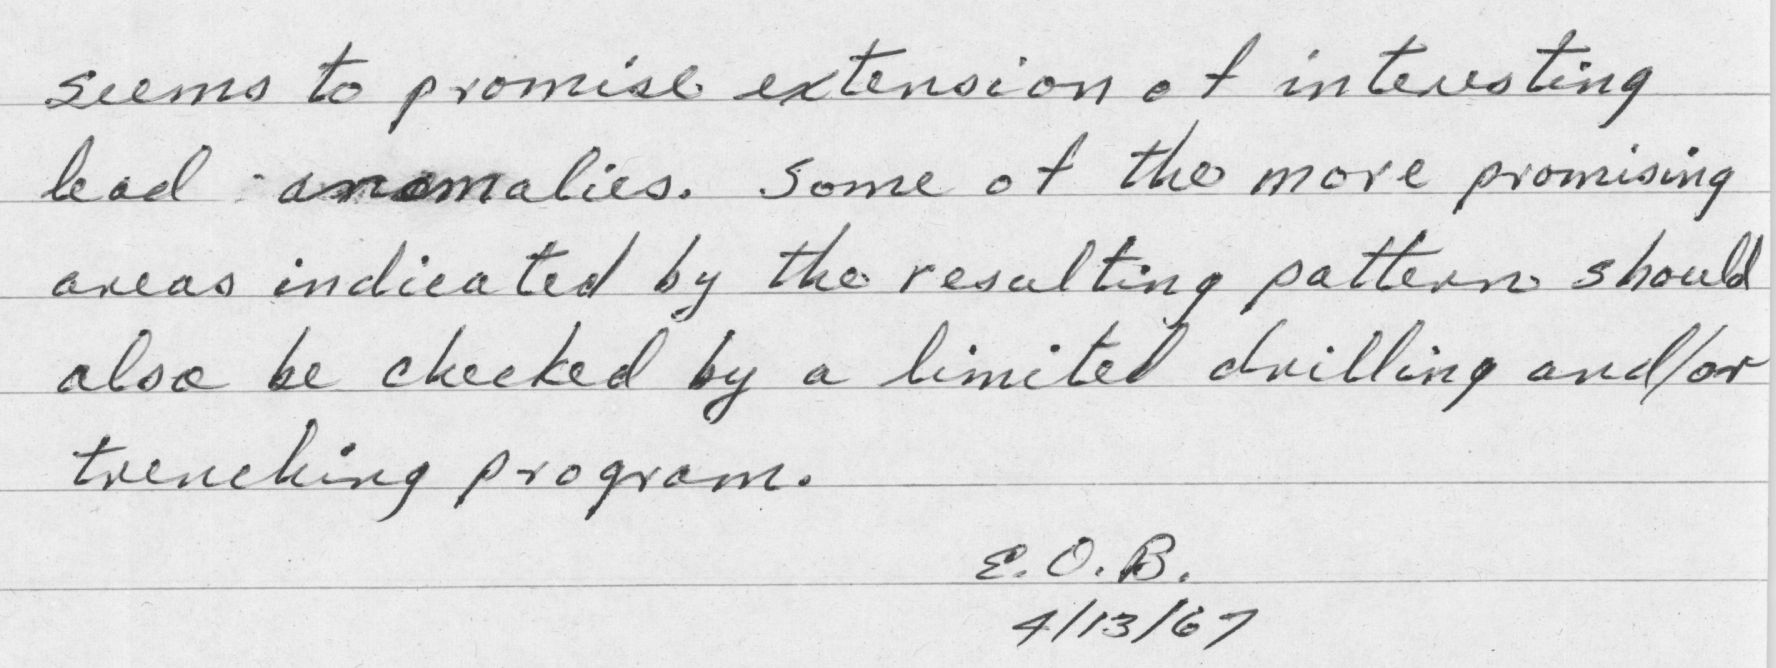 seems to promise extension of interesting
lead anomalies. Some of the more promising
areas indicated by the resulting pattern should
also be checked by a limited drilling and/or
trenching program.
E.O.B.
4/13/67